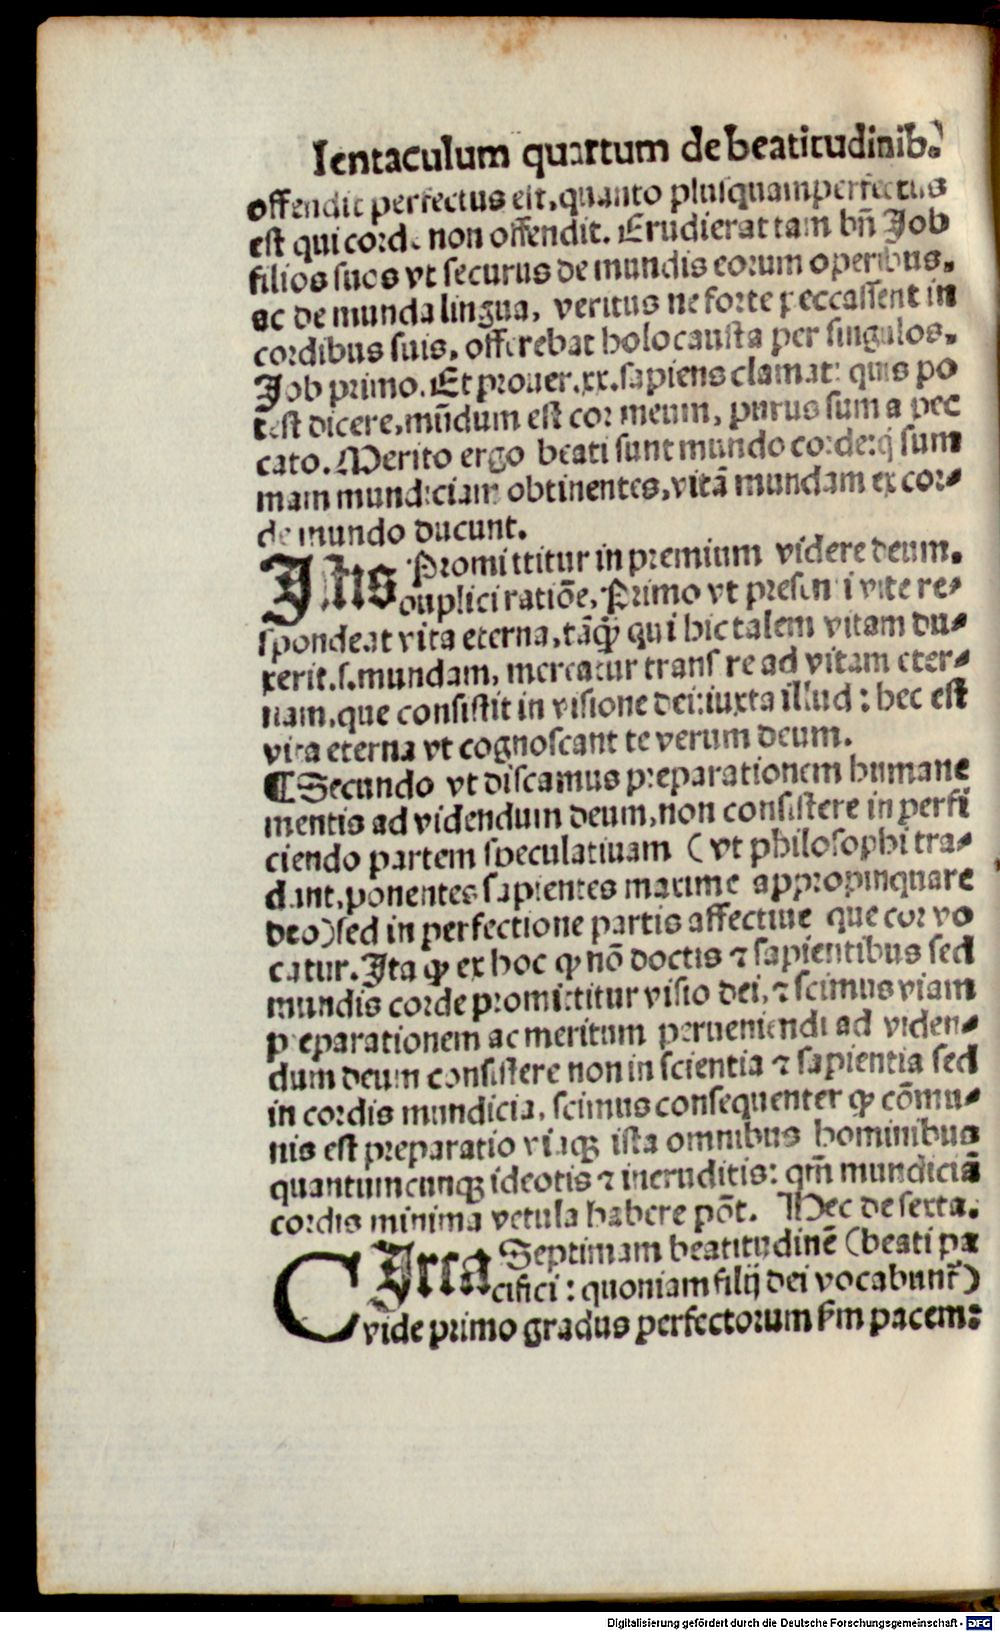 Ientaculum quartum de beatitudinib.
offendit perfectus est, quanto plusquamperfectus
est qui corde non offendit. Erudierat tam bñ Job
filios suos vt securus de mundis eorum operibus,
ac de munda lingua, veritus ne forte peccassent in
cordibus suis, offerebat holocausta per singulos,
Job primo. Et prouer.xx.sapiens clamat: quis po
test dicere, mũdum est cor meum, purus sum a pec
cato. Merito ergo beati sunt mundo corde: q̃ sum
mam mundiciam obtinentes, vitã mundam ex cor⸗
de mundo ducunt.
Istis Promittitur in premium videre deum,
duplici ratiõe, Primo vt presenti vite re⸗
spondeat vita eterna, tãꝙ̃ qui hic talem vitam du⸗
xerit.s.mundam, mereatur transire ad vitam eter⸗
nam, que consistit in visione dei: iuxta illud: hec est
vita eterna vt cognoscant te verum deum.
¶ Secundo vt discamus preparationem humane
mentis ad videndum deum, non consistere in perfi
ciendo partem speculatiuam (vt philosophi tra⸗
dunt, ponentes sapientes maxime appropinquare
deo) sed in perfectione partis affectiue que cor vo
catur. Ita ꝙ ex hoc ꝙ nõ doctis ⁊ sapientibus sed
mundis corde promittitur visio dei, ⁊ scimus viam
preparationem ac meritum perueniendi ad viden⸗
dum deum consistere non in scientia ⁊ sapientia sed
in cordis mundicia, scimus consequenter ꝙ cõmu⸗
nis est preparatio viaqꝫ ista omnibus hominibus
quantumcunqꝫ ideotis ⁊ ineruditis: qm̃ mundiciã
cordis minima vetula habere põt. Hec de sexta.
CIrca Septimam beatitudinẽ (beati pa
cifici: quoniam filij dei vocabunt̃)
vide primo gradus perfectorum fm pacem:
Digitalisierung gefördert durch die Deutsche Forschungsgemeinschaft - DFG